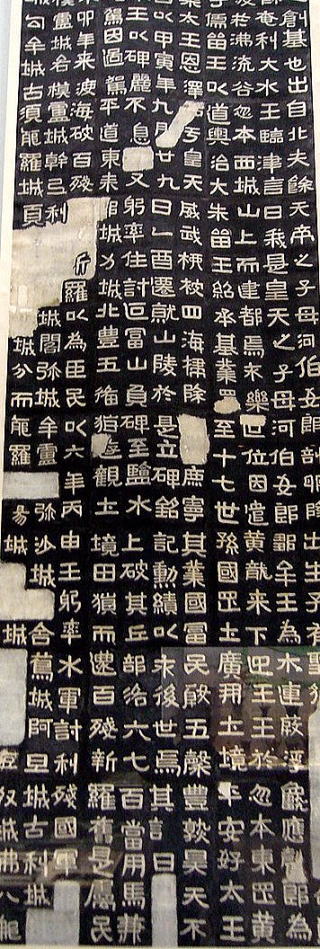 創基也出自北夫餘天帝之子母河伯女郎剖卵降出生子有聖
奄利大水王臨津言曰我是皇天之子母河伯女郎鄒牟王為木連葭浮龜應聲即為
於沸流谷忽本西城山上而建都焉永樂世位因遣黃龍來下迎王王於忽本東罡黃
子儒留王以道興治大朱留王紹承基業至十七世孫國罡上廣開土境平安好太王
樂太王恩澤于皇天威武被四海掃除庶寧其業國富民殷五穀豐熟昊天不
以甲寅年九月廿九日乙酉遷就山陵於是立碑銘記勳績以示後世焉其言曰
王以碑麗不息又躬率住討叵富山負碑至鹽水上破其丘部洛六七百當用馬
駕因過駕平道東來城力城北豐五遊觀土境田獵而還百殘新羅舊是屬民
卯年來渡海破百殘斤羅以為臣民以六年丙申王躬率水軍討利殘國軍
城模盧城幹弖利城閣彌城牟盧城彌沙城舍蔦城阿旦城古利城
勾牟城古須能羅城頁城分而能羅場城城奴城沸八那